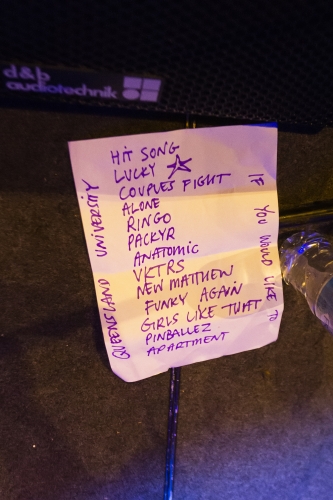 d&b
audiotechnik
HIT SONG
LUCKY
COUPLES FIGHT
ALONE
RINGO
PACKYR
ANATOMIC
VKTRS
NEW MATTHEW
FUNKY AGAIN
GIRLS LIKE THAT
PINBALLEZ
APARTMENT
QUEENSLAND UNIVERSITY
IF YOU WOULD LIKE TO